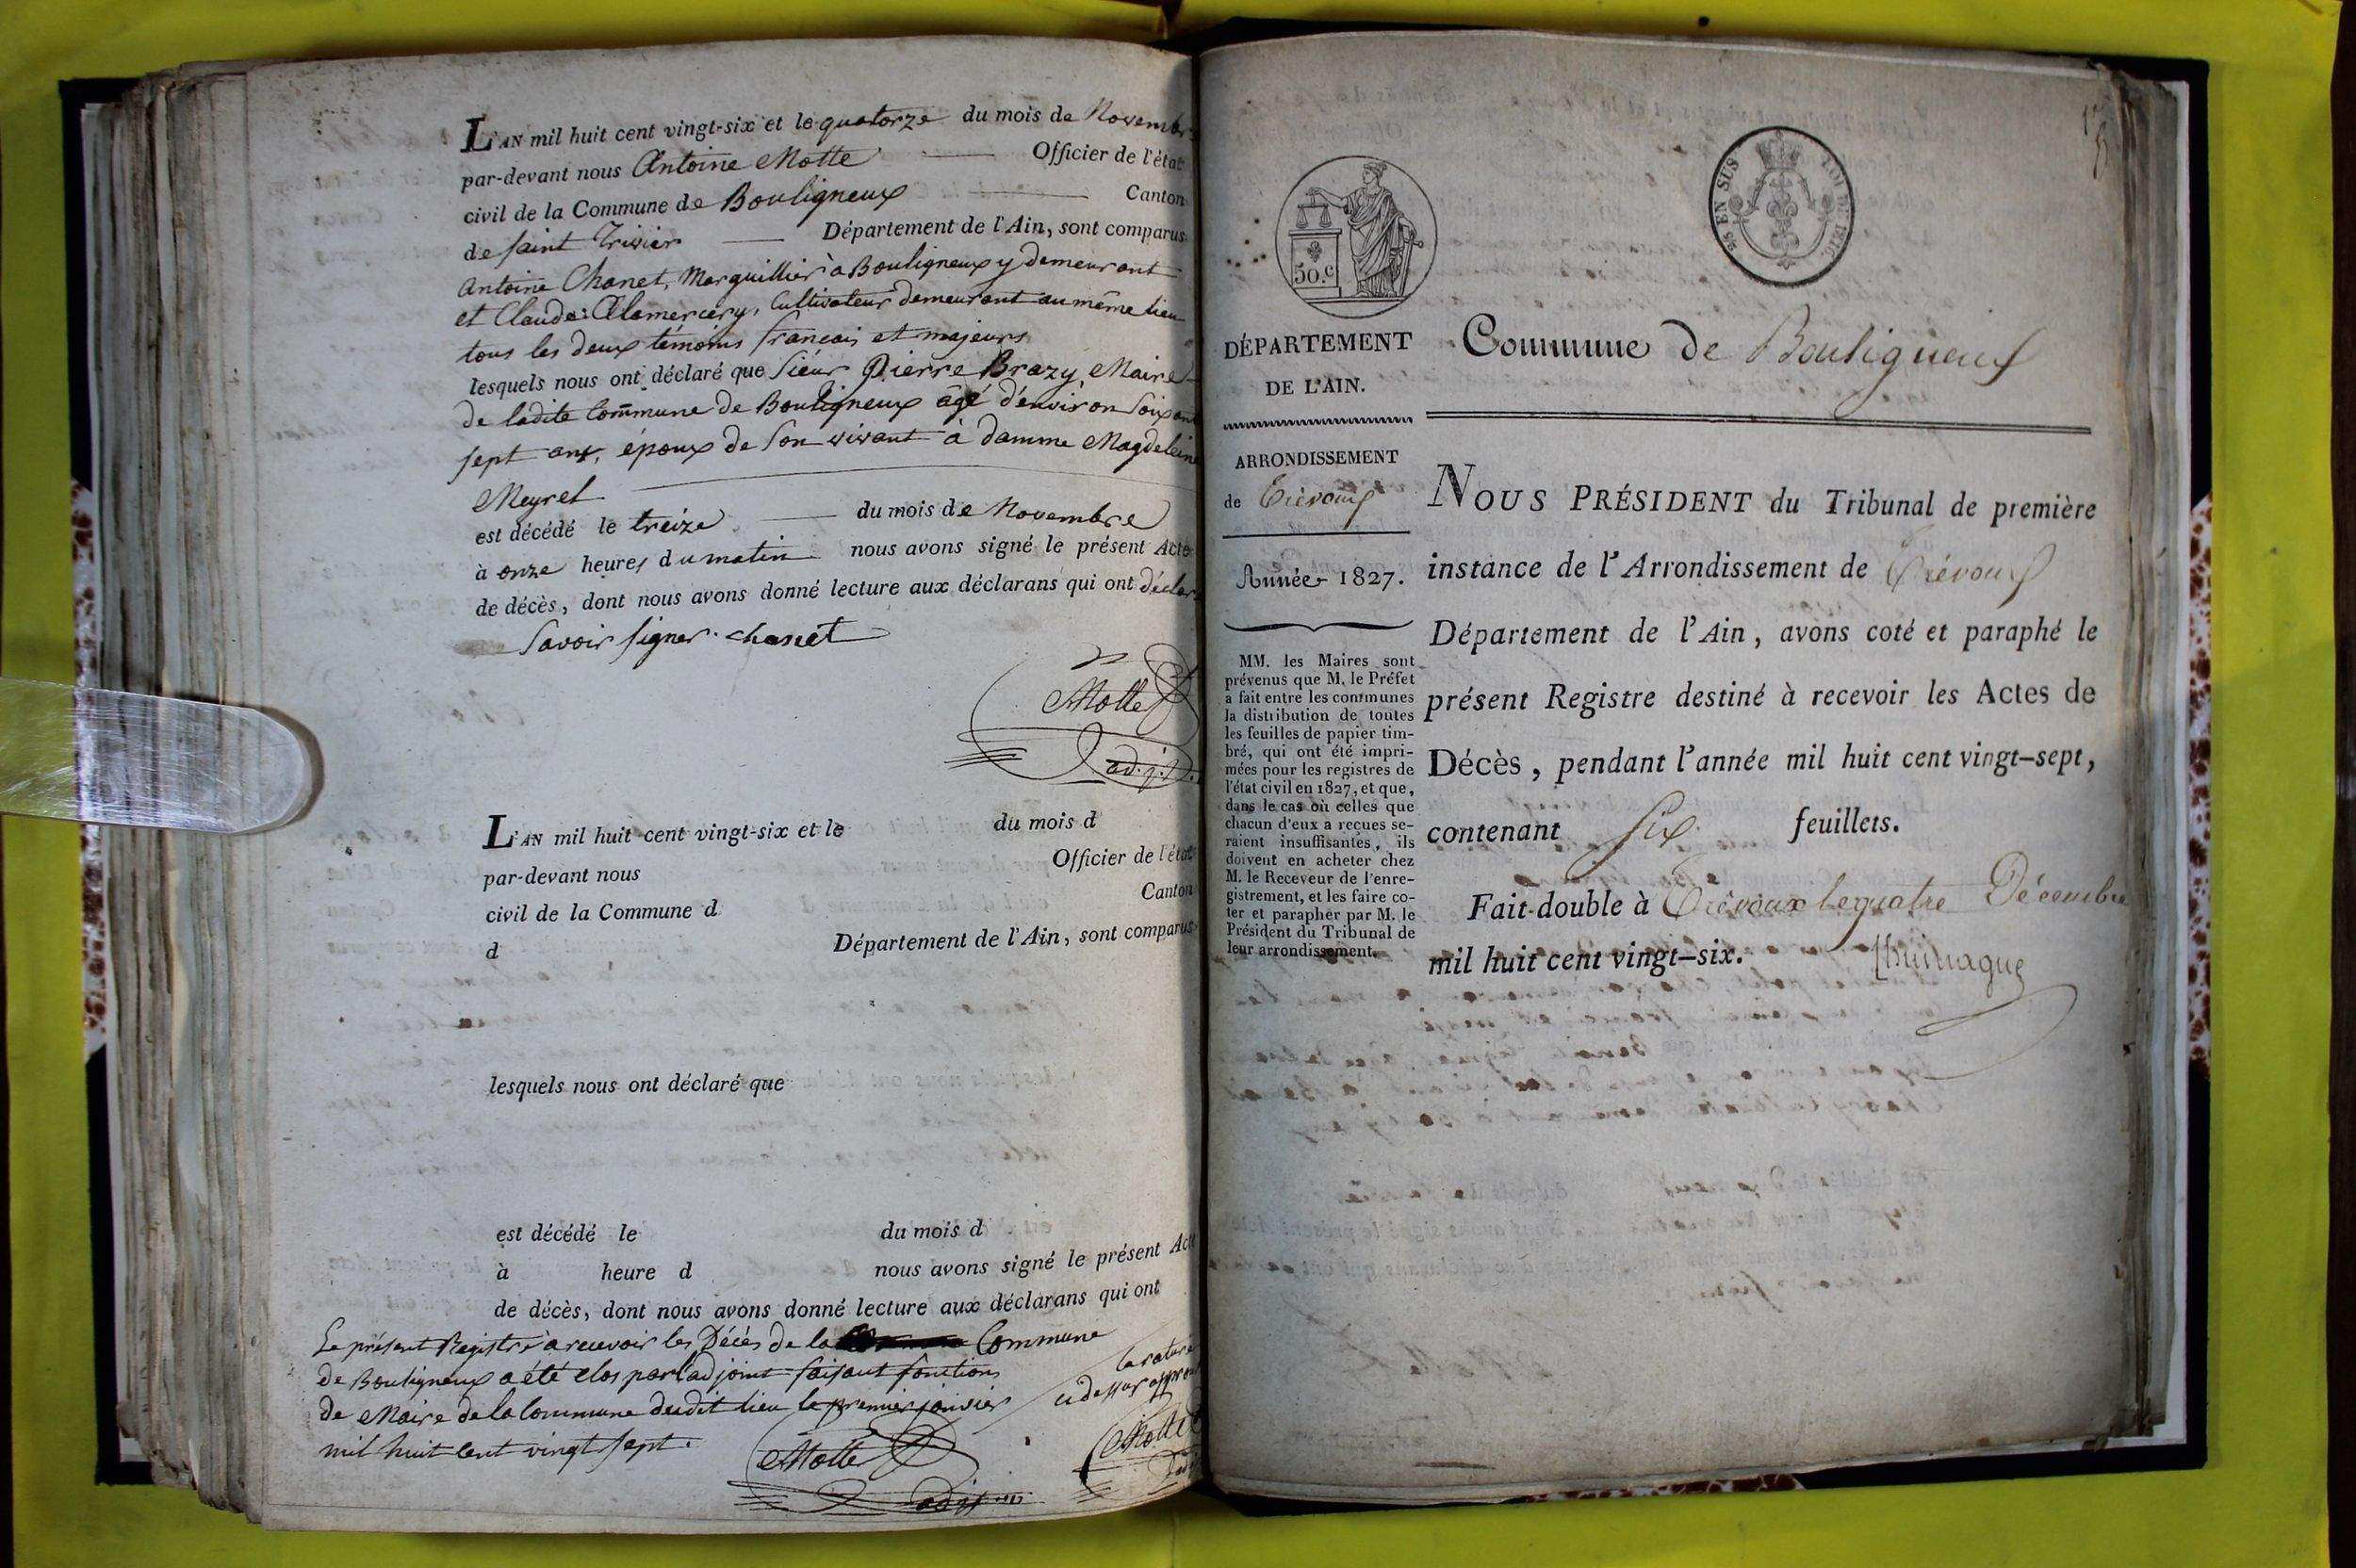 L'AN mil huit cent vingt-six et le quatorze du mois de Novembre
par-devant nous Antoine Motte Officier de l'état
civil de la Commune de Bouligneux Canton
de Saint Trivier Département de l'Ain, sont comparus
Antoine Chanet, Marguillier à Bouligneux y demeurant
et Claude Alamercery, Cultivateur demeurant au même lieu
tous les deux témoins francais et majeurs
lesquels nous ont déclaré que Sieur Pierre Brazy, Maire
de ladite Commune de Bouligneux âgé d'environ Soixan
sept ans, époux de Son vivant à damme Magdeleine
Meyret
est décédé le treize du mois de Novembre
à onze heures du matin nous avons signé le présent Acte
de décès, dont nous avons donné lecture aux déclarans qui ont déclar
Savoir signer. chanet
Motte
adj.
L'AN mil huit cent vingt-six et le du mois d
par-devant nous Officier de l'état
civil de la Commune d Canton
d Département de l'Ain, sont comparus
lesquels nous ont déclaré que
est décédé le du mois d
à heure d nous avons signé le présent Acte
de décès, dont nous avons donné lecture aux déclarans qui ont
Le présent Registre à recevoir les Décès de la Commune
de Bouligneux a été clos par l'adjoint faisant fonctions
de Maire de la Commune dudit lieu le premier janvier
mil huit cent vingt sept.
la rature
ci dessus approu
Motte
adjt
Motte
25 EN SUS
LOI DE 1816.
50.c
DÉPARTEMENT
DE L'AIN.
ARRONDISSEMENT
de Trévoux
Année 1827.
MM. les Maires sont
prévenus que M. le Préfet
a fait entre les communes
la distribution de toutes
les feuilles de papier tim-
bré, qui ont été impri-
mées pour les registres de
l'état civil en 1827, et que,
dans le cas où celles que
chacun d'eux a reçues se-
raient insuffisantes, ils
doivent en acheter chez
M. le Receveur de l'enre-
gistrement, et les faire co-
ter et parapher par M. le
Président du Tribunal de
leur arrondissement.
Commune de Bouligneux
NOUS PRÉSIDENT du Tribunal de première
instance de l'Arrondissement de Trévoux
Département de l'Ain, avons coté et paraphé le
présent Registre destiné à recevoir les Actes de
Décès, pendant l'année mil huit cent vingt-sept,
contenant six feuillets.
Fait double à Trévoux le quatre Décembre
mil huit cent vingt-six.